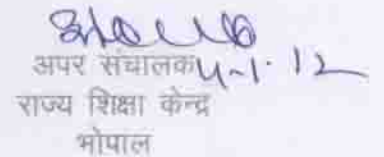 अपर संचालक 4-1-12
राज्य शिक्षा केन्द्र
भोपाल